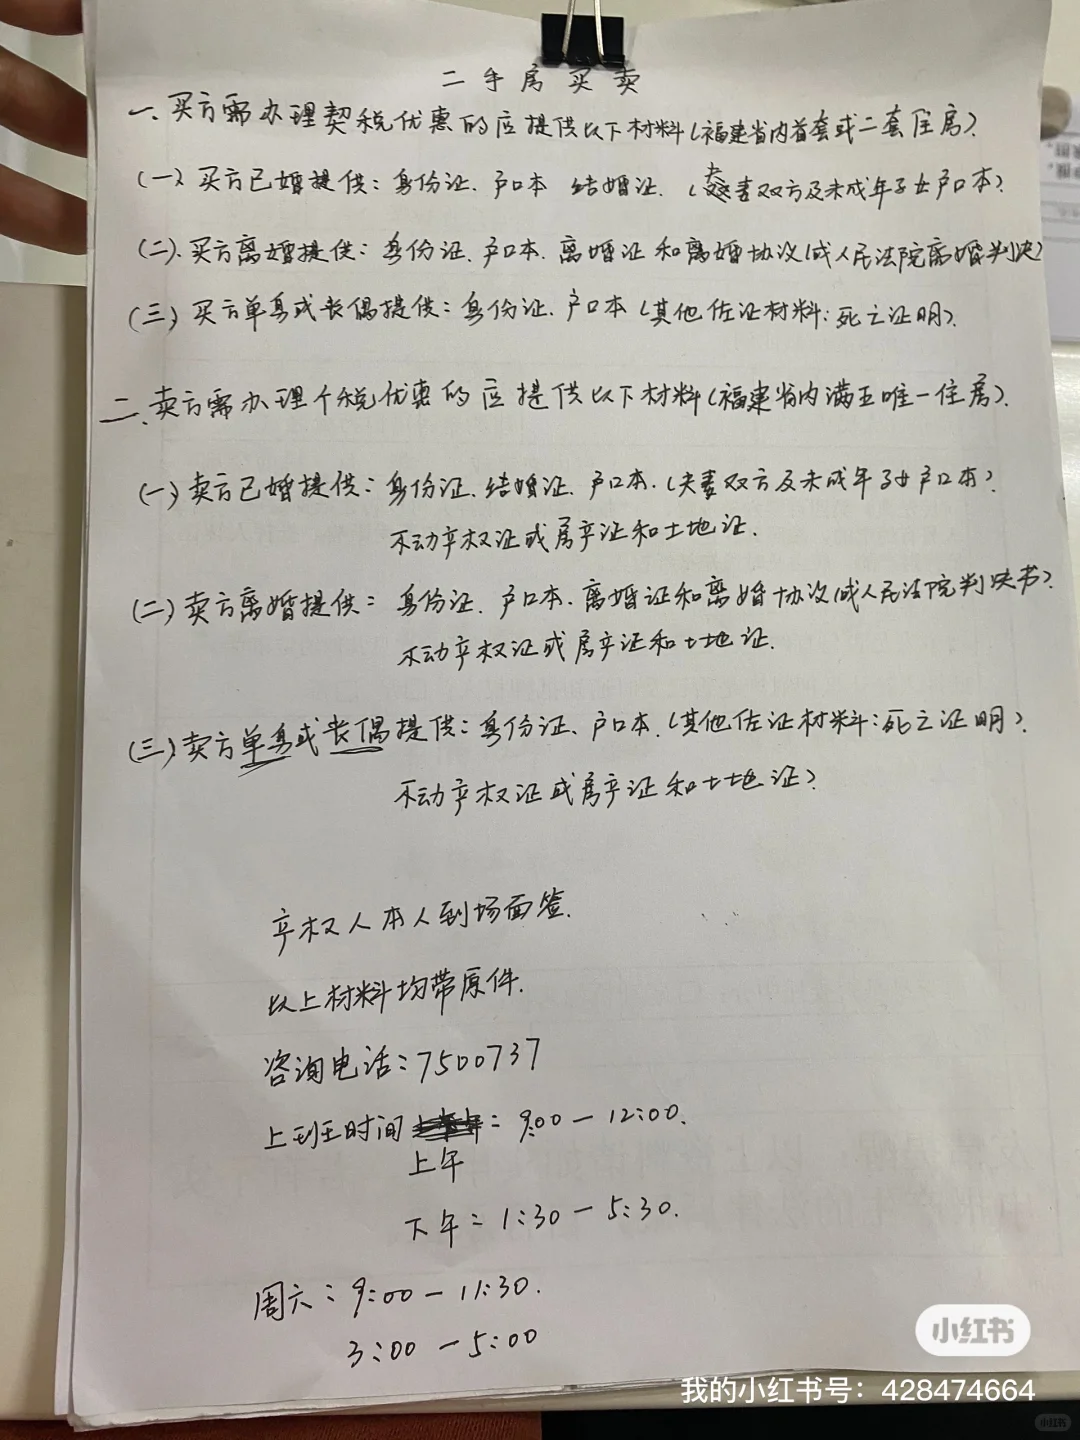 二手房买卖
一、买方需办理契税优惠的应提供以下材料(福建省内首套或二套住房).
(一)、买方已婚提供：身份证、户口本 结婚证.(夫妻双方及未成年子女户口本).
(二)、买方离婚提供：身份证、户口本、离婚证和离婚协议(或人民法院离婚判决)
(三)、买方单身或丧偶提供：身份证、户口本(其他佐证材料：死亡证明).
二、卖方需办理个税优惠的应提供以下材料(福建省内满五唯一住房).
(一)、卖方已婚提供：身份证、结婚证、户口本.(夫妻双方及未成年子女户口本).
不动产权证或房产证和土地证.
(二)、卖方离婚提供：身份证、户口本、离婚证和离婚协议(或人民法院判决书).
不动产权证或房产证和土地证.
(三)、卖方单身或丧偶提供：身份证、户口本.(其他佐证材料：死亡证明).
不动产权证或房产证和土地证).
产权人本人到场面签.
以上材料均带原件.
咨询电话：7500737
上班时间：9:00－12:00.
上午
下午：1:30－5:30.
周六：9:00－11:30.
3:00－5:00
小红书
我的小红书号：428474664
小红书